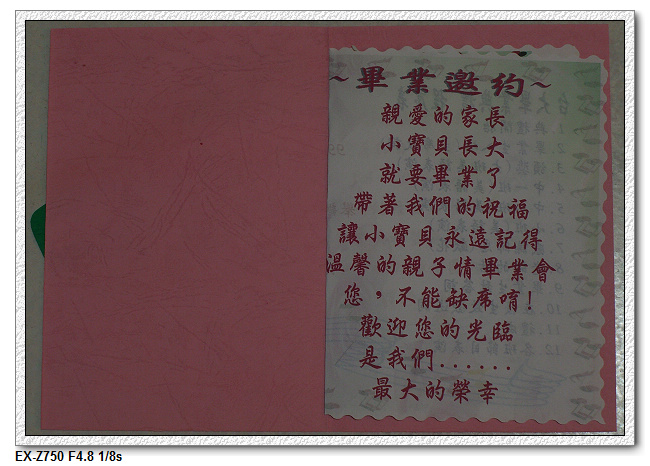 ~畢業邀约~
親愛的家長
小寶貝長大
就要畢業了
帶著我們的祝福
讓小寶貝永遠記得
溫馨的親子情畢業會
您，不能缺席唷!
歡迎您的光臨
是我們......
最大的榮幸
EX-Z750 F4.8 1/8s